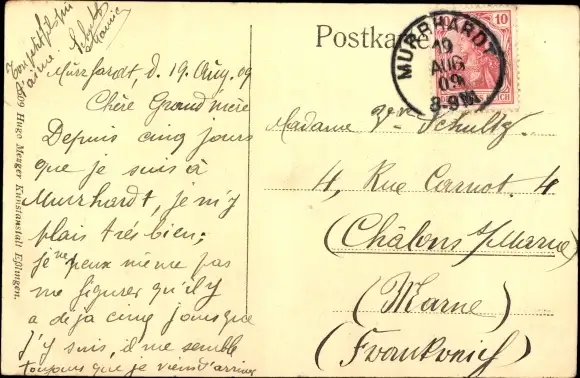 Murrhardt, d. 19. Aug. 09
Chère Grand'mère
Depuis cinq jours
que je suis à
Murrhardt, je m'y
plais très bien;
je ne peux même pas
me figurer qu'il y
a déjà cinq jours que
j'y suis, il me semble
toujours que je viens d'arriver
Ton petit-fils qui
t'aime
1909 Hugo Mezger Kunstanstalt Eßlingen.
Postkarte
MURRHARDT
19
AUG
09
8-9 N
10
REICH
Madame Vve Schultz.
4, Rue Carnot. 4
(Châlons s/Marne)
(Marne)
(Frankreich)